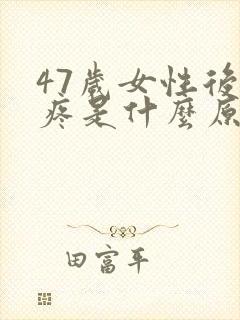 47歲女性後
疼是什麼原
田富平